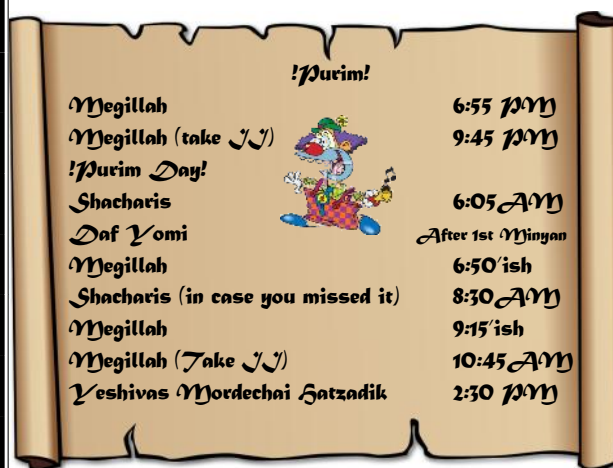 !Purim!
Megillah 6:55 PM
Megillah (take II) 9:45 PM
!Purim Day!
Shacharis 6:05 AM
Daf Yomi After 1st Minyan
Megillah 6:50'ish
Shacharis (in case you missed it) 8:30 AM
Megillah 9:15'ish
Megillah (Take II) 10:45 AM
Yeshivas Mordechai Hatzadik 2:30 PM